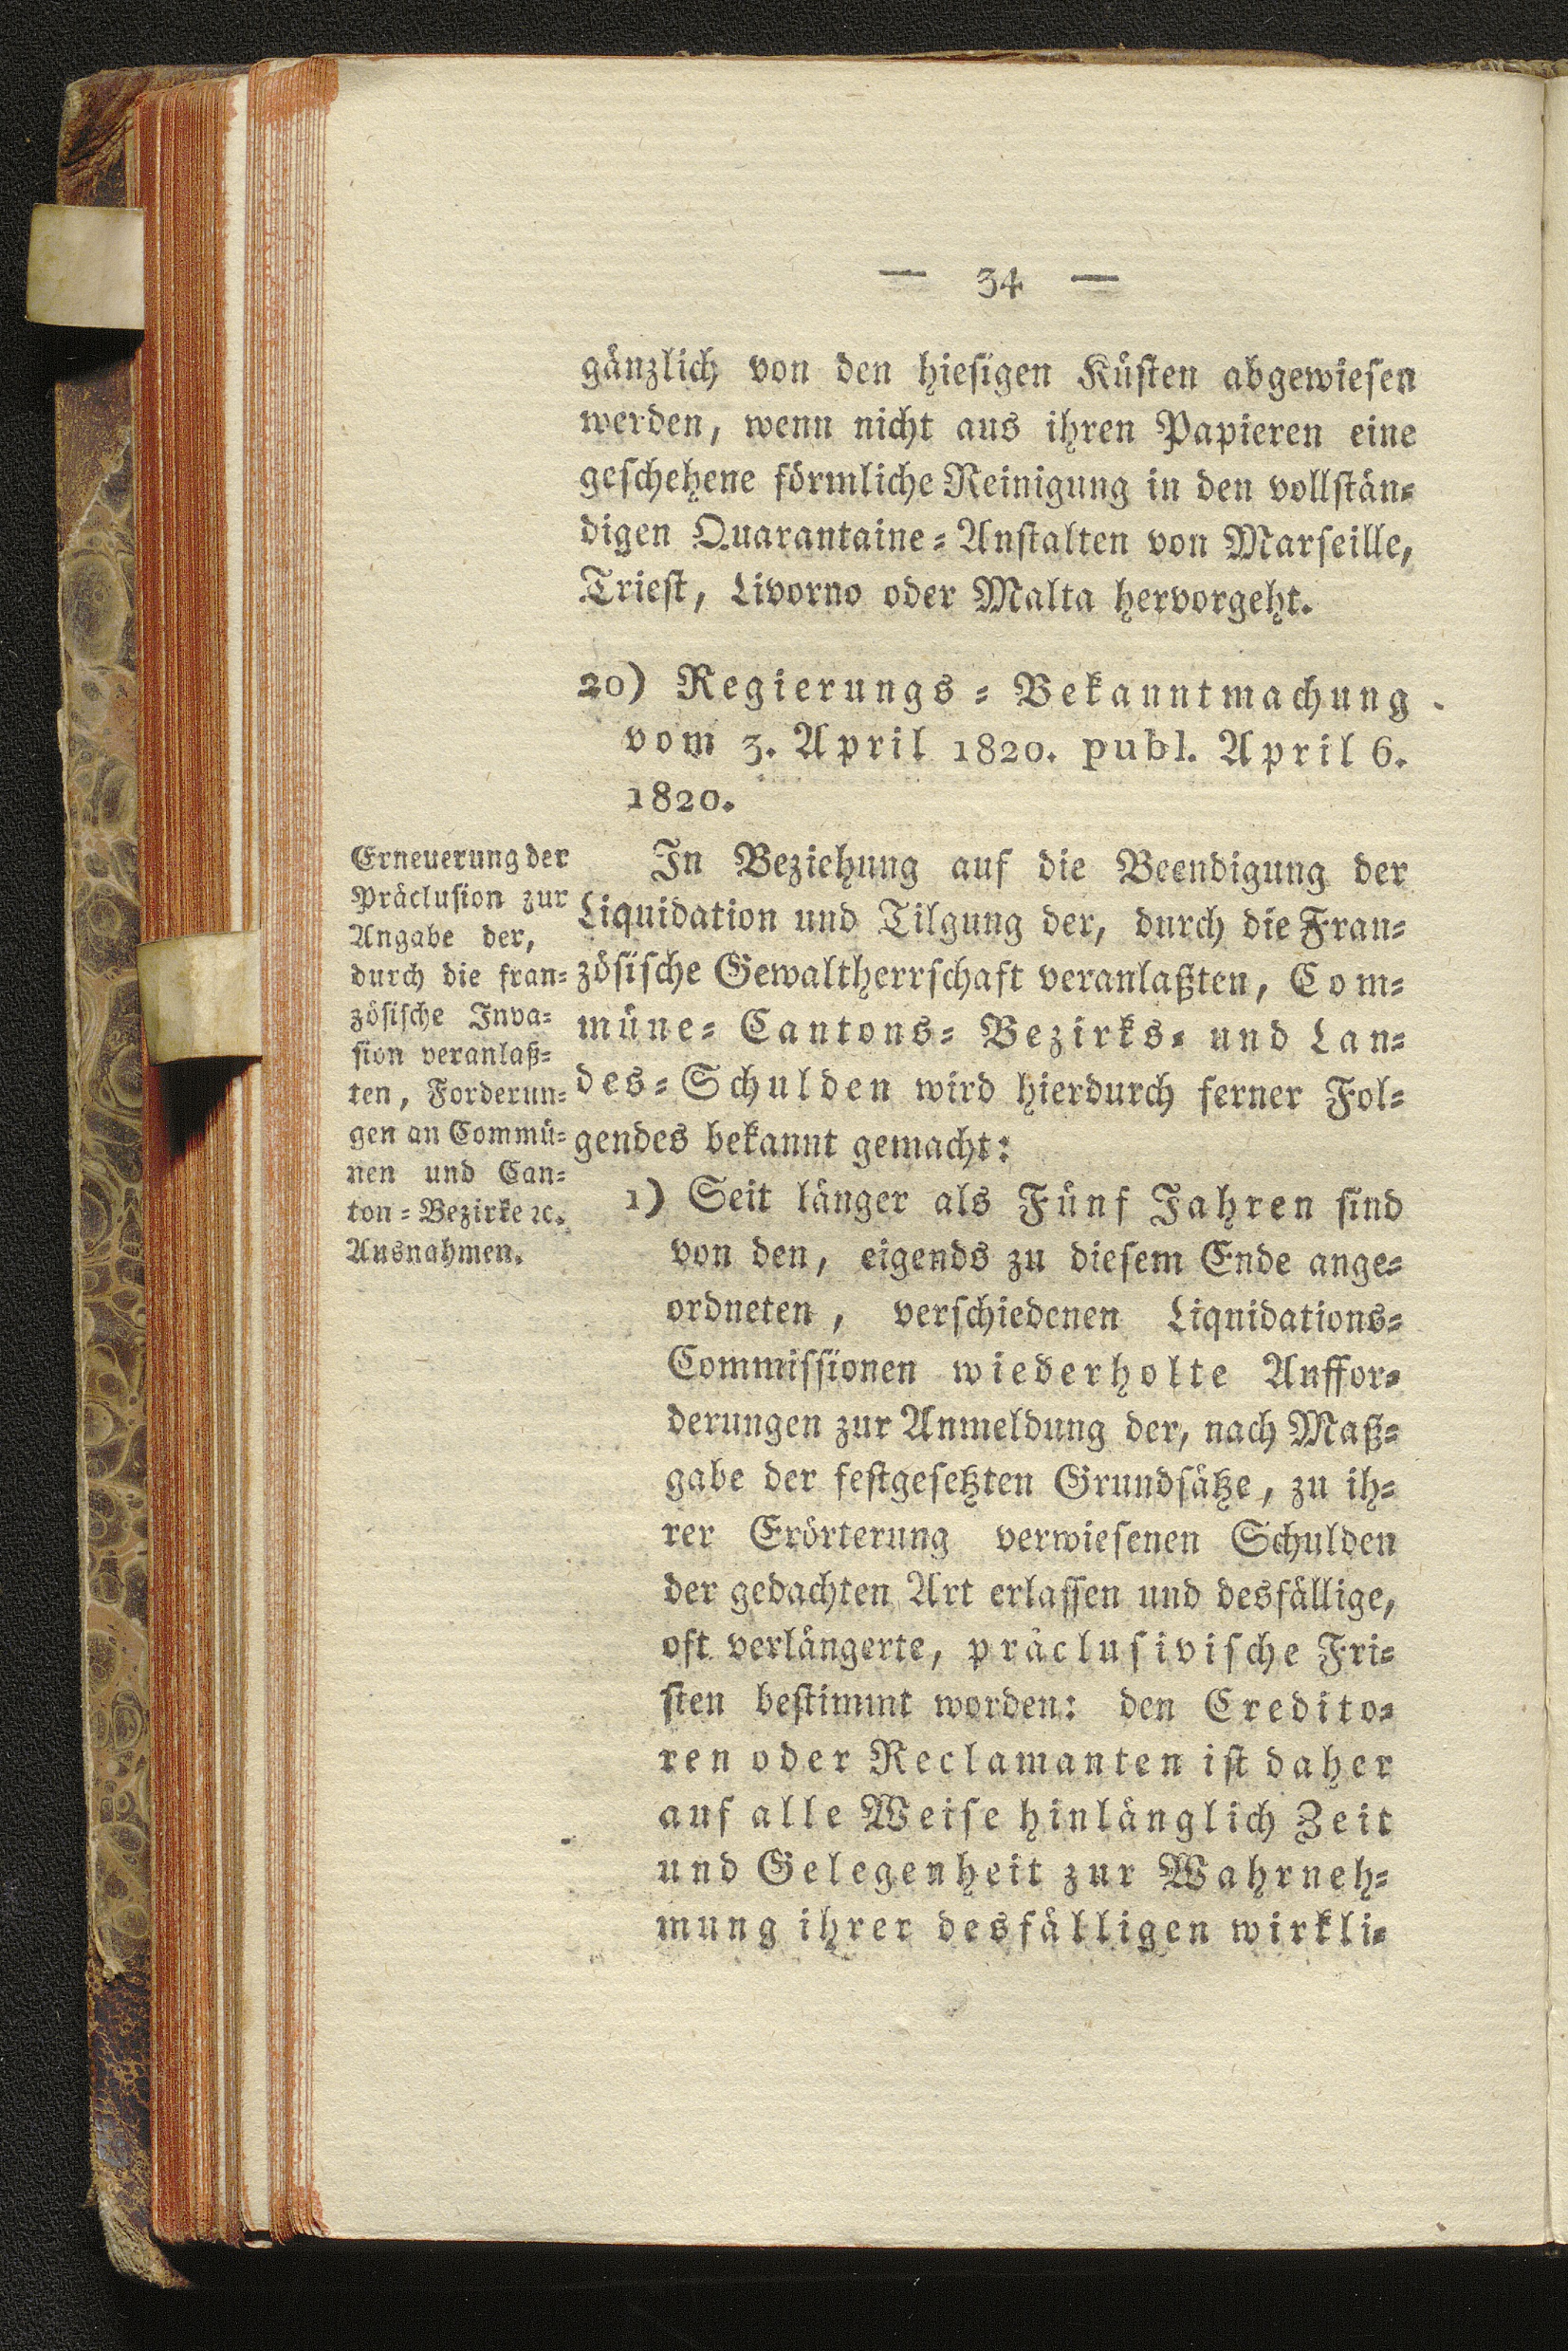 — 34 —
gänzlich von den hiesigen Küsten abgewiesen
werden, wenn nicht aus ihren Papieren eine
geschehene förmliche Reinigung in den vollstän-
digen Quarantaine-Anstalten von Marseille,
Triest, Livorno oder Malta hervorgeht.
20) Regierungs-Bekanntmachung
vom 3. April 1820. publ. April 6.
1820.
Erneuerung der
Präclusion zur
Angabe der,
durch die fran-
zösische Inva-
sion veranlaß-
ten, Forderun-
gen an Commü-
nen und Can-
ton-Bezirke ꝛc.
Ausnahmen.
In Beziehung auf die Beendigung der
Liquidation und Tilgung der, durch die Fran-
zösische Gewaltherrschaft veranlaßten, Com-
müne- Cantons- Bezirks- und Lan-
des-Schulden wird hierdurch ferner Fol-
gendes bekannt gemacht:
1) Seit länger als Fünf Jahren sind
von den, eigends zu diesem Ende ange-
ordneten, verschiedenen Liquidations-
Commissionen wiederholte Auffor-
derungen zur Anmeldung der, nach Maß-
gabe der festgesetzten Grundsätze, zu ih-
rer Erörterung verwiesenen Schulden
der gedachten Art erlassen und desfällige,
oft verlängerte, präclusivische Fri-
sten bestimmt worden: den Credito-
ren oder Reclamanten ist daher
auf alle Weise hinlänglich Zeit
und Gelegenheit zur Wahrneh-
mung ihrer desfälligen wirkli-